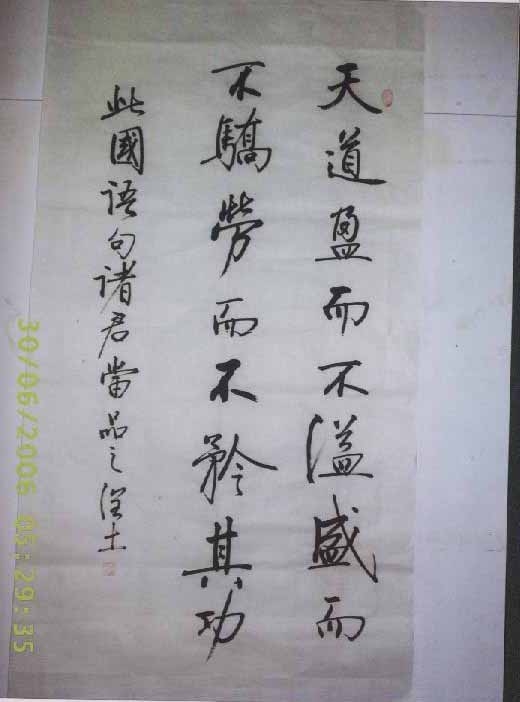 天道盈而不溢盛而
不驕勞而不矜其功
此國语句诸君當品之淫土
30/06/2006 05:29:35